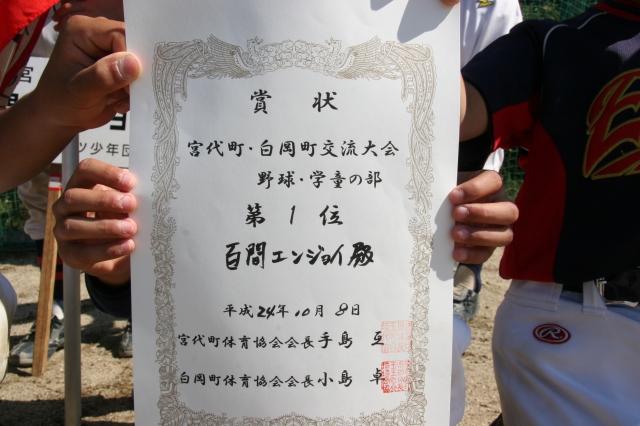 賞状
宮代町・白岡町交流大会
野球・学童の部
第1位
百間エンジョイ殿
平成24年10月8日
宮代町体育協会会長手島亙
白岡町体育協会会長小島卓
宮
ツ少年団
R